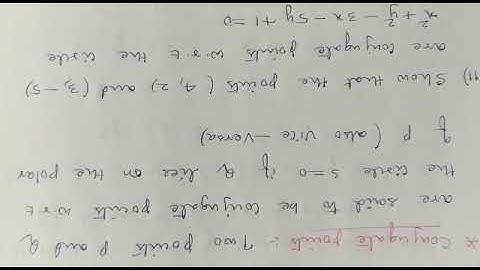 * Conjugate points :- Two points P and Q
are said to be conjugate points w.r.t
the circle S=0 if Q lies on the polar
of P (also vice-versa)
11) Show that the points (4, 2) and (3, -5)
are conjugate points w.r.t the circle
x²+y²-3x-5y+1=0